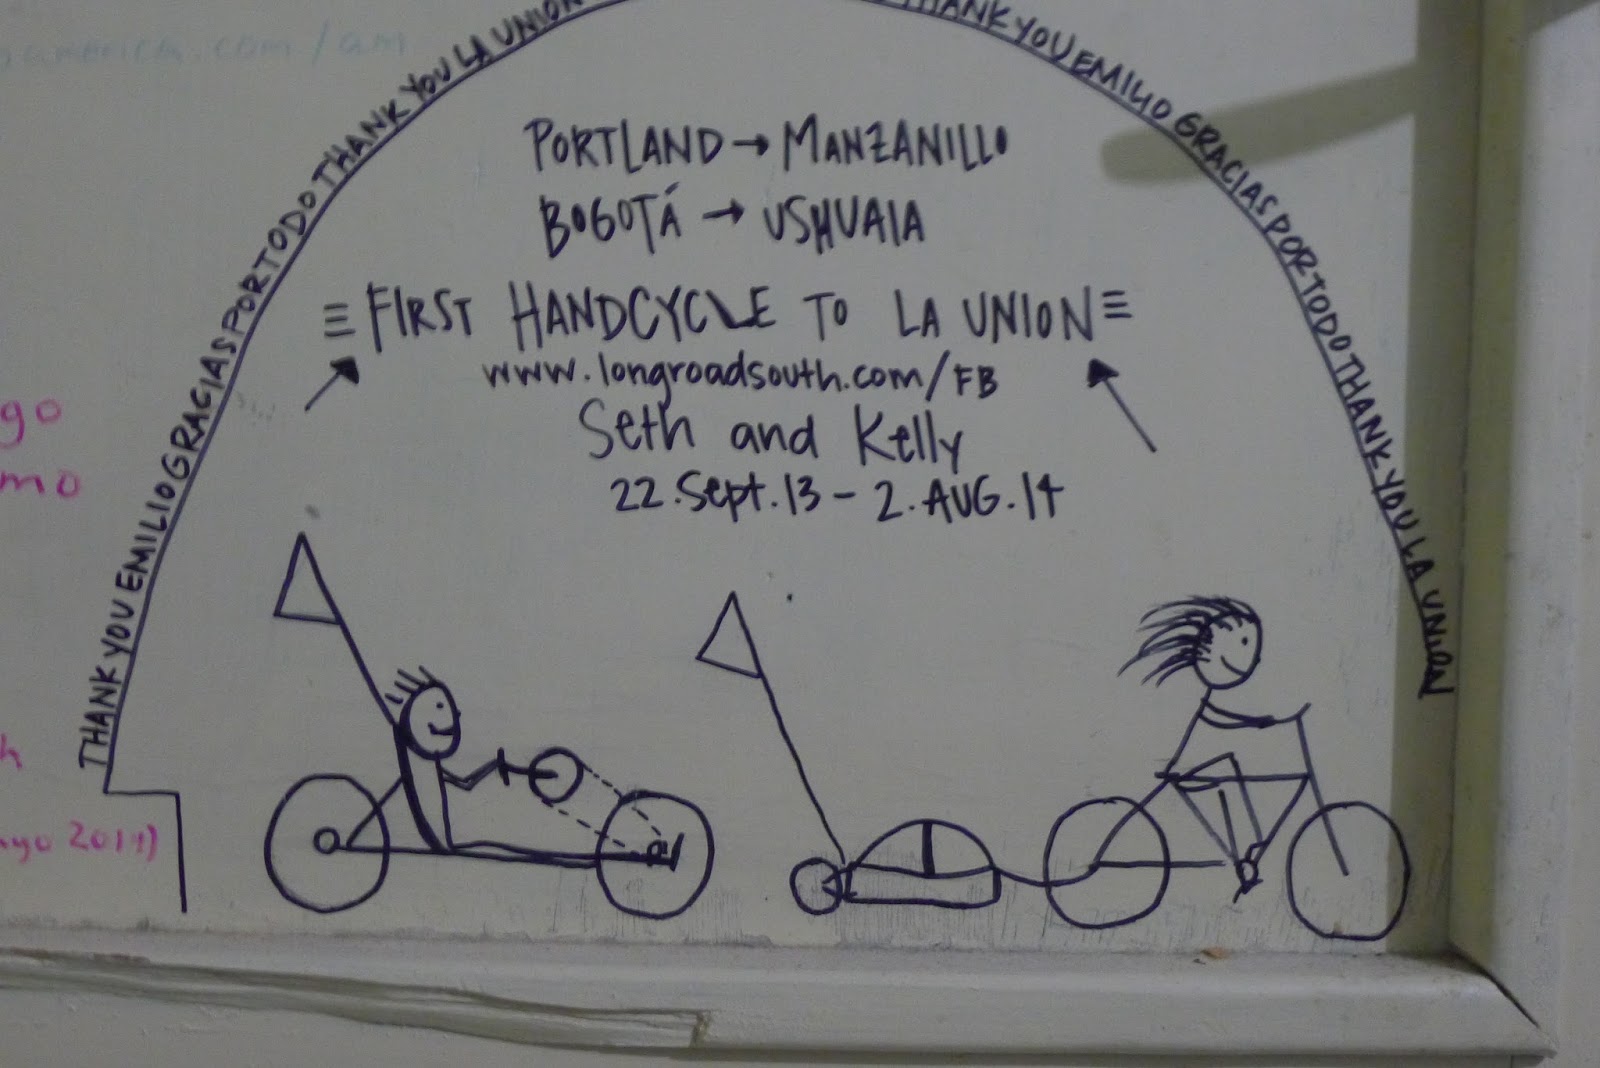 america.com/am
THANK YOU EMILIO GRACIAS POR TODO THANK YOU LA UNION
THANK YOU EMILIO GRACIAS POR TODO THANK YOU LA UNION
PORTLAND → MANZANILLO
BOGOTÁ → USHUAIA
≡ FIRST HANDCYCLE TO LA UNION ≡
www.longroadsouth.com/FB
Seth and Kelly
22.Sept.13 - 2.AUG.14
go
mo
h
ayo 2014)